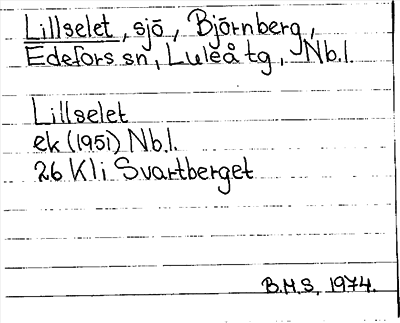 Lillselet, sjö, Björnberg,
Edefors sn, Luleå tg, Nb.l.
Lillselet
ek (1951) Nb.l.
26 Kli Svartberget
B.M.S, 1974.